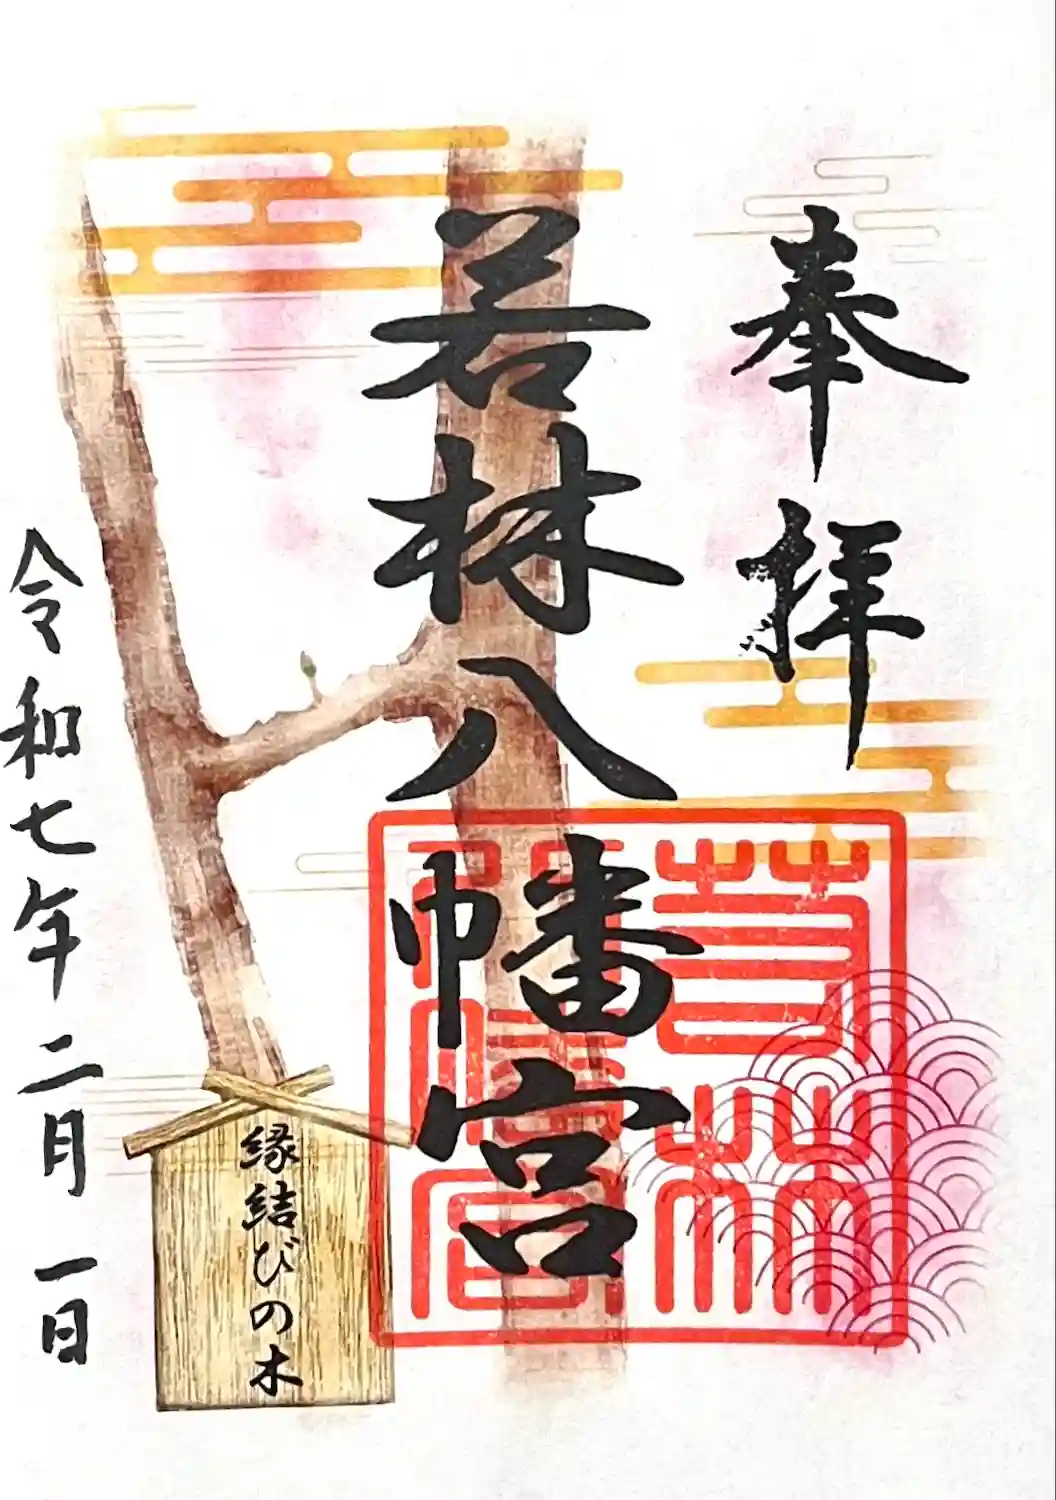 奉拝
若林八幡宮
若林八幡宮
縁結びの木
令和七年二月一日